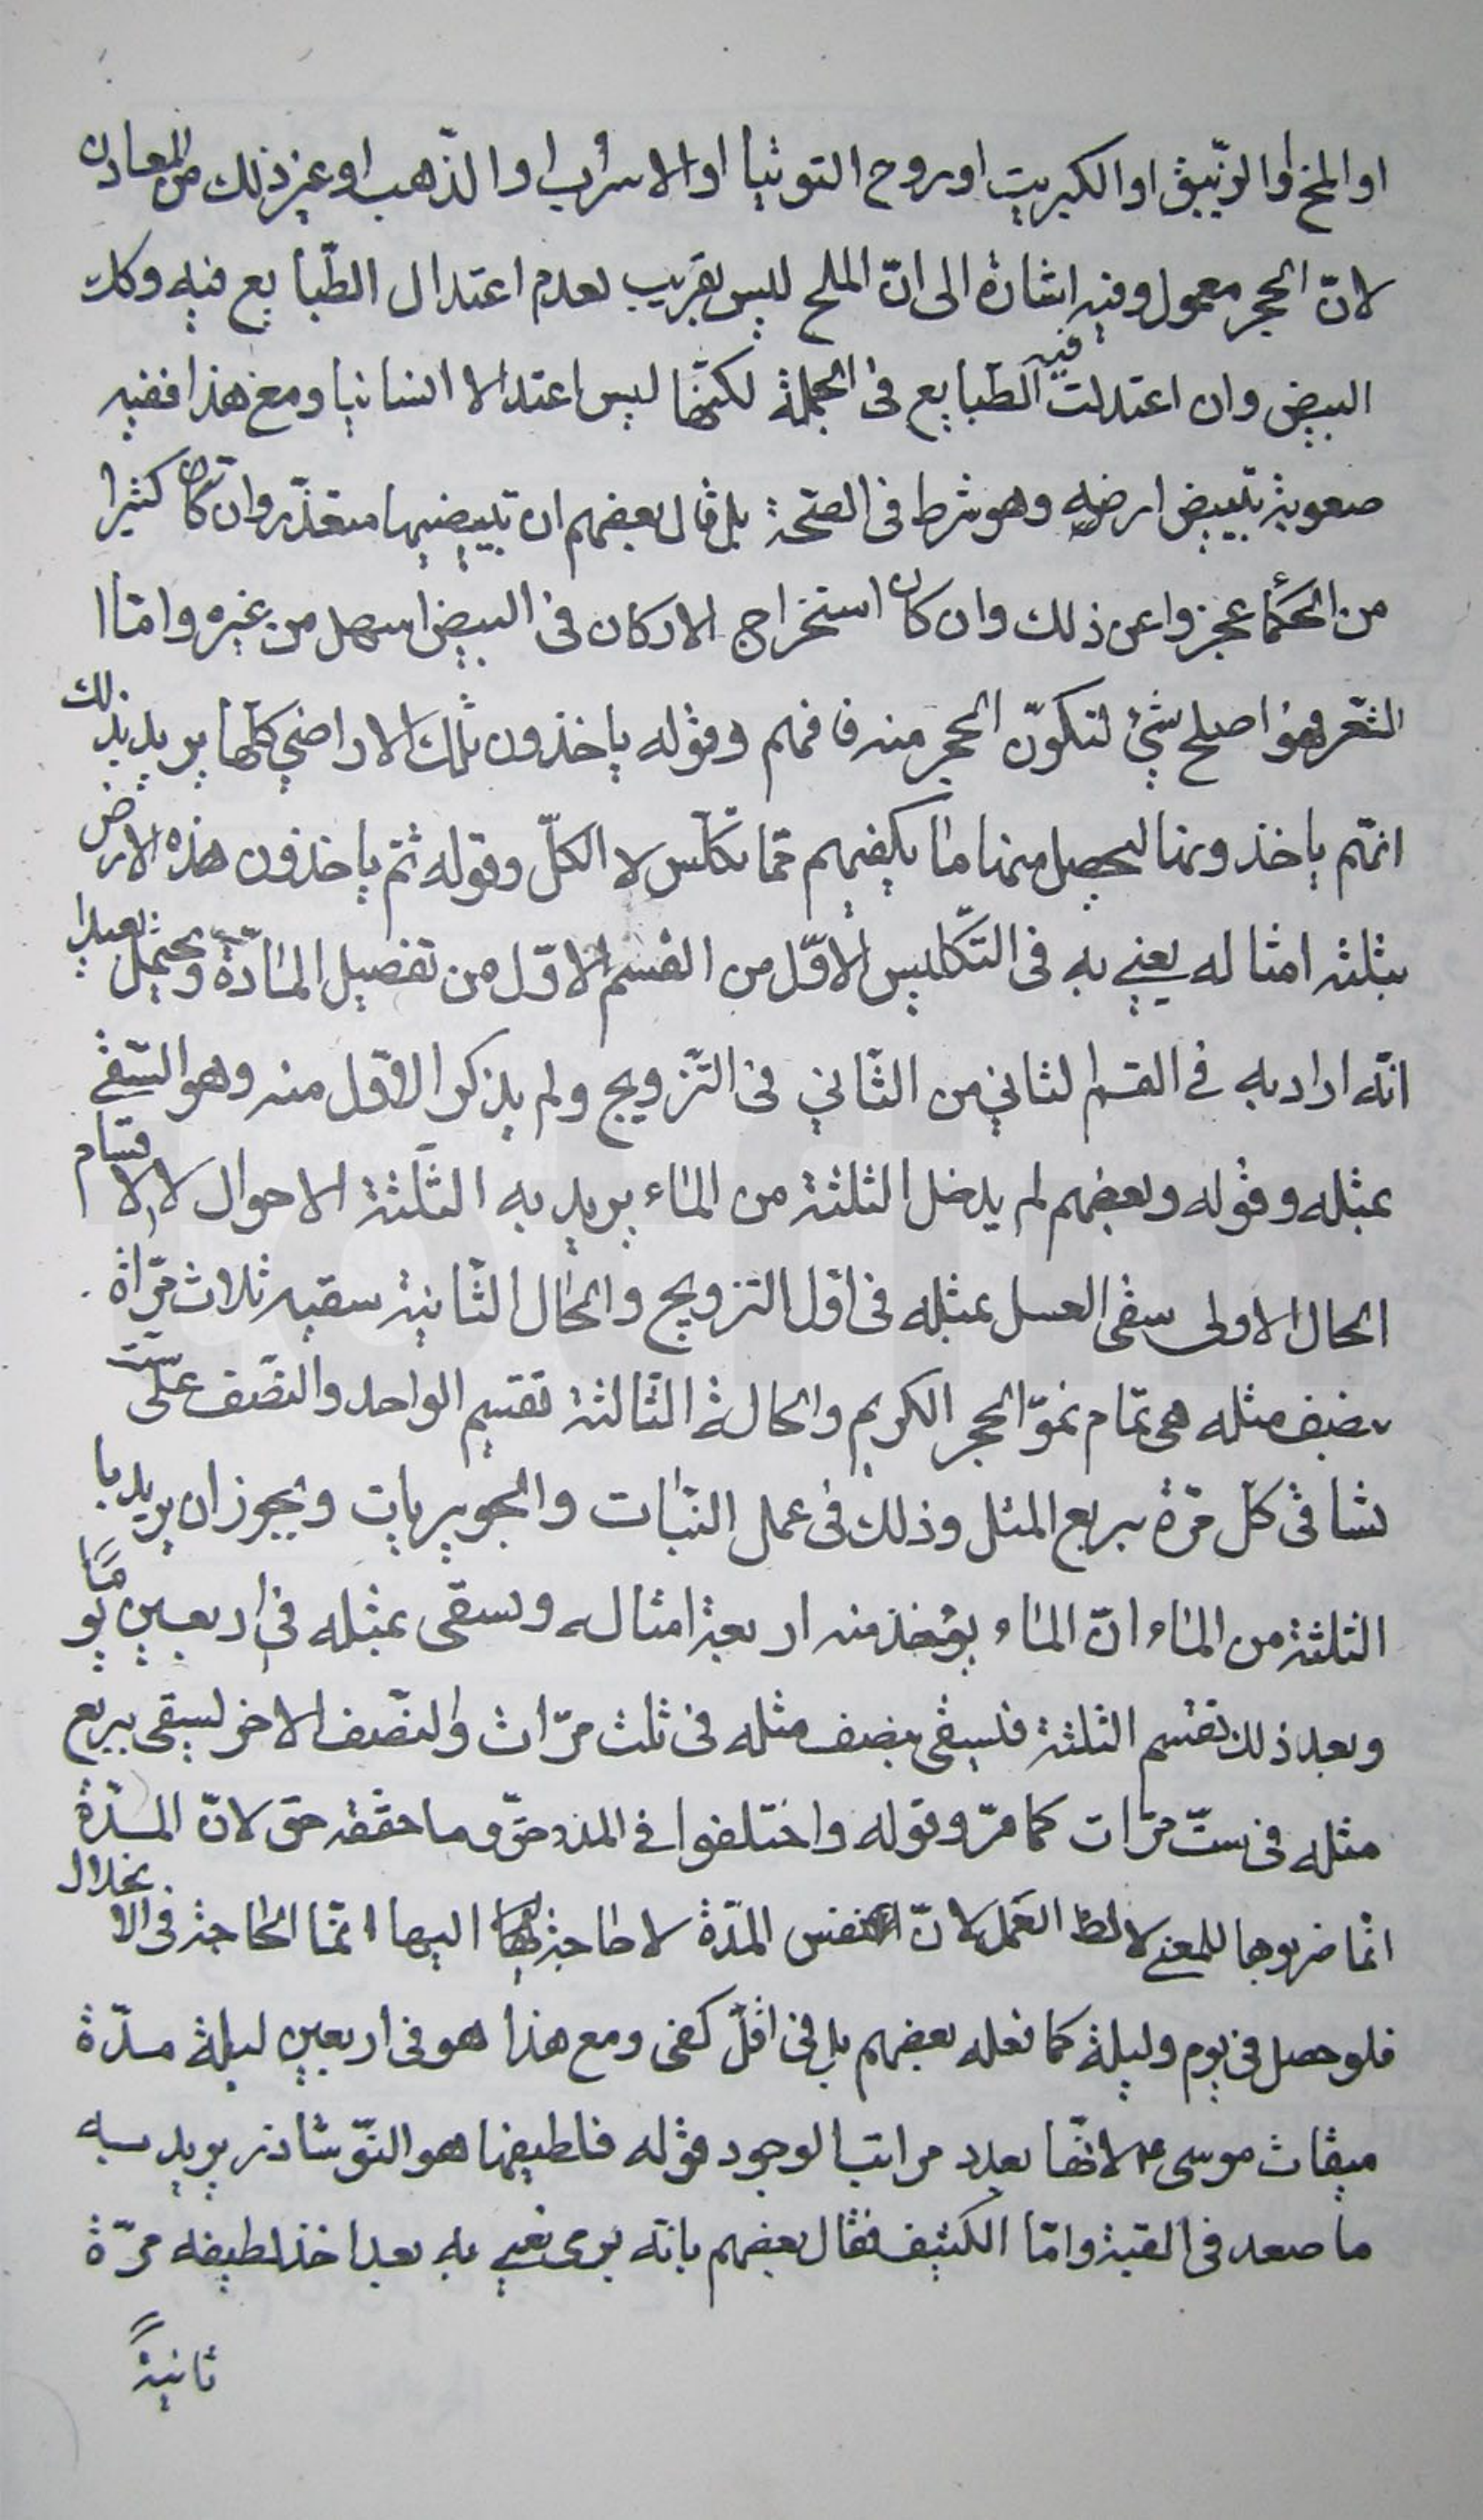 او المخ او الزّيبق او الكبريت او روح التوتيا او الاسرب او الذّهب او غير ذلك من المعادن
لانّ الحجر معمول وفيه اشارة الى انّ الملح ليس بقريب لعدم اعتدال الطّبايع فيه وكك
البيض وان اعتدلت فيه الطّبايع فى الجملة لكنّها ليس اعتدالا انسانيا ومع هذا ففيه
صعوبة تبييض ارضه وهو شرط فى الصّحة بل قال بعضهم ان تبييضها متعذّر وان كان كثيرا
من الحكمأ عجزوا عن ذلك وان كان استخراج الاركان فى البيض اسهل من غيره وامّا ا
لشّعر فهو اصلح شئ لتكوّن الحجر منه فافهم وقوله ياخذون تلك الاراضي كلها يريد بذلك
انّهم ياخذونها ليحصل منها ما يكفيهم ممّا تكلّس لا الكلّ وقوله ثمّ ياخذون هذه الارض
بثلثة امثاله يعني به فى التّكليس الاوّل من القسم الاوّل من تفصيل المادّة ويحتمل بعيدا
انّه اراد به في القسم الثاني من الثّاني فى التّزويج ولم يذكر الاوّل منه وهو السّقى
بمثله وقوله وبعضهم لم يدخل الثلثة من الماء يريد به الثّلثة الاحوال لا الاقسام
الحال الاولى سقى العسل بمثله فى اوّل التزويج والحال الثّانية سقيه ثلاث مرّاة
بنصف مثله هى تمام نموّ الحجر الكريم والحالة الثّالثة تقسيم الواحد والنصّف على ستّ
تشا فى كلّ مرّة بربع المثل وذلك فى عمل النّبات والجويريات ويجوز ان يريد با
لثلثة من الماء انّ الماء يؤخذ منه اربعة امثاله ويسقى بمثله فى اربعين يومًا
وبعد ذلك تقسم الثلثة فليسقى بنصف مثله فى ثلث مرّات والنصّف الاخر ليسقى بربع
مثله فى ستّ مرّات كما مرّ وقوله واختلفوا في المدد حقّ وما حققه حق لانّ المدّة
انّما ضربوها للمعنى لا العمل لانّ نفس المدّة لا حاجة اليها انمّا الحاجة فى الانحلال
فلو حصل فى يوم وليلة كما فعله بعضهم بل فى اقلّ كفى ومع هذا هو فى اربعين ليلة مدّة
ميقات موسى ع لانّها بعدد مراتب الوجود قوله فلطيفها هو النّوشاذر يريد به
ما صعد فى القبة وامّا الكثيف فقال بعضهم بانّه يرمى يعني به بعد اخذ لطيفه مرّة
ثانيةً